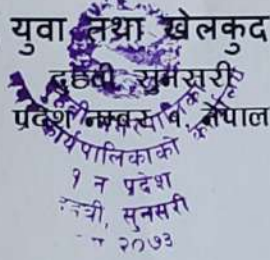 युवा तथा खेलकुद
दुहवी सुनसरी
प्रदेश नम्बर १, नेपाल
कार्यपालिकाको
१ न प्रदेश
सुनसरी
२०७३